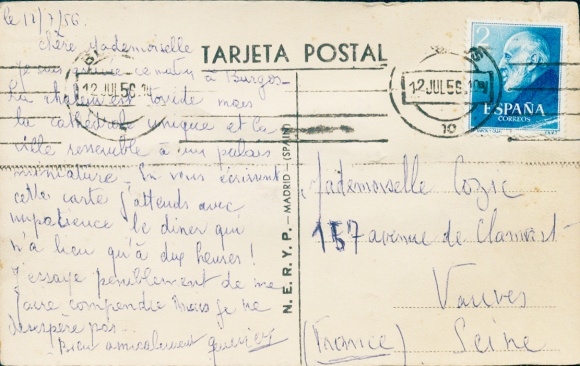 le 12/7/56.
Chère Mademoiselle
Je suis arrivée ce matin à Burgos
La chaleur est torride mais
la cathédrale unique et la
ville ressemble à un palais
miniature. En vous écrivant
cette carte j'attends avec
impatience le diner qui
n'a lieu qu'à dix heures !
J'essaye péniblement de me
faire comprendre mais je ne
désespère pas..
Bien amicalement
TARJETA POSTAL
12 JUL 56
12 JUL 56
10
2
ESPAÑA
CORREOS
N. E. R. Y. P. - MADRID - (SPAIN)
Mademoiselle Cozic
157 avenue de Clamart
Vanves
(France) Seine